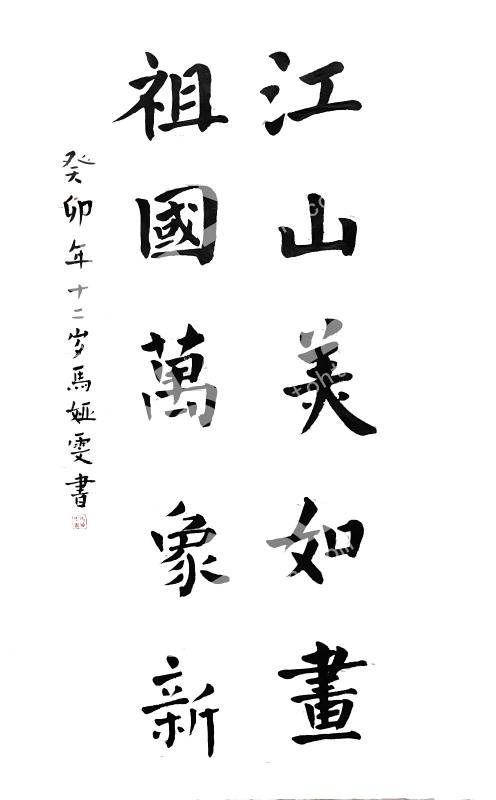 江山美如畫
祖國萬象新
癸卯年十二岁馬娅雯書